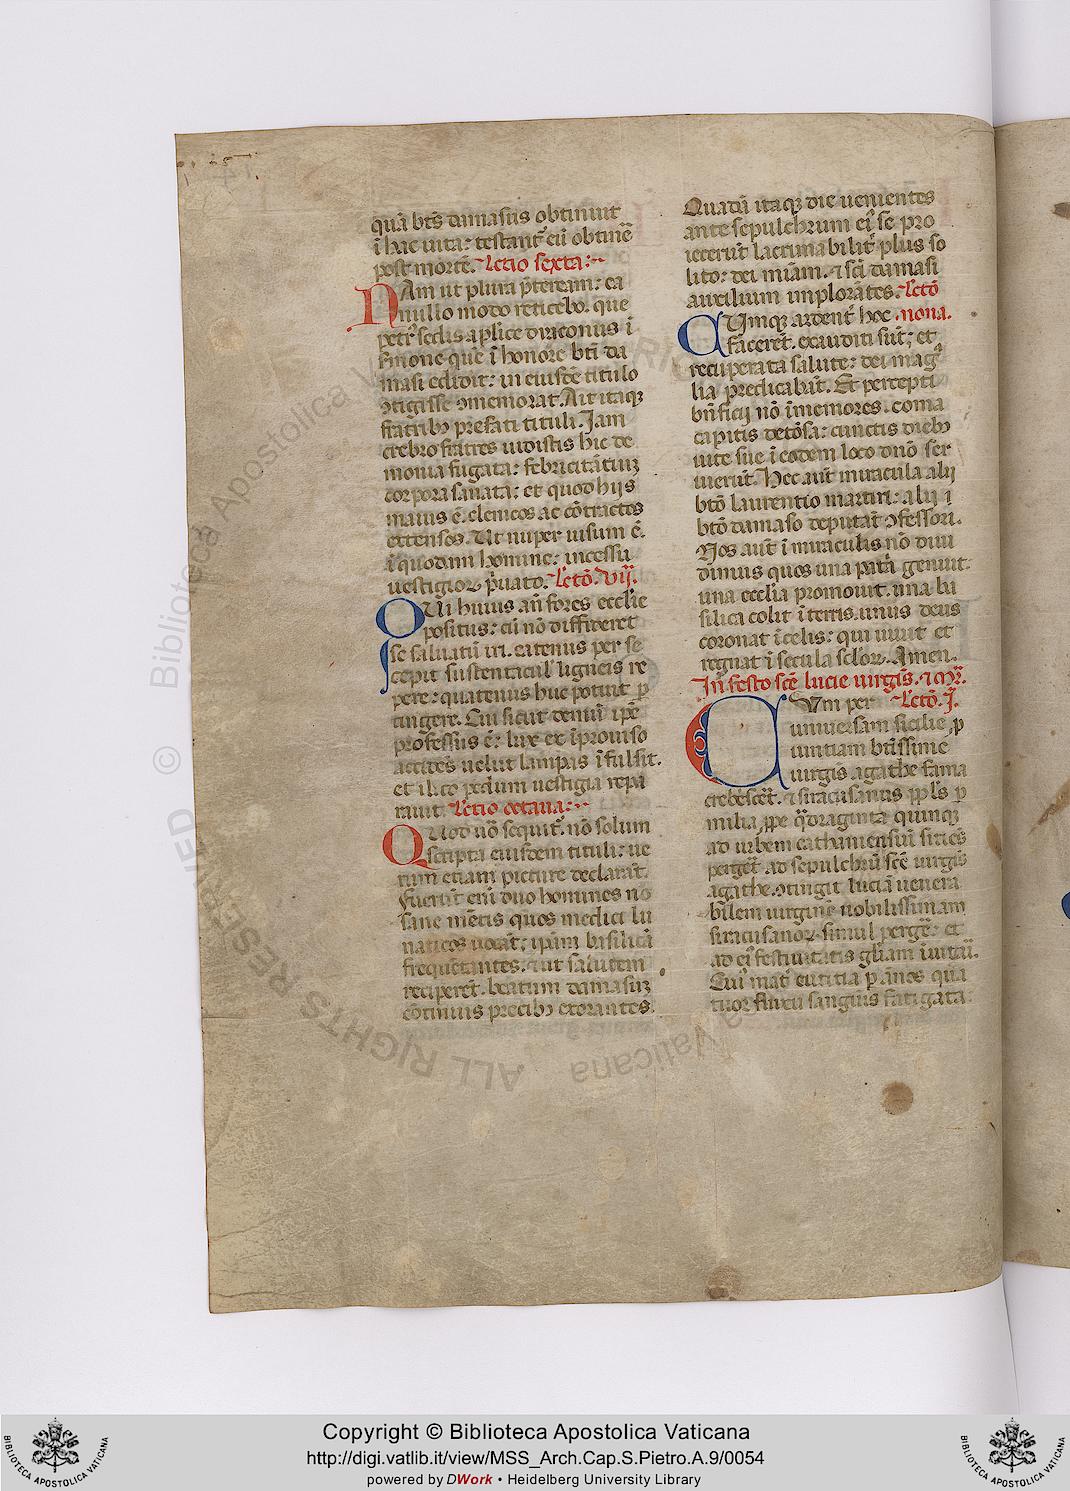 quā bt̄s damasus obtinuit
ī hac uita: testant᷑ eū obtinē
post mortē. Lectio sexta:~
NAm ut plura pͤteream: ea
nullo modo reticebo. que
petr᷑ sedis aplice diaconus ī
s̄mone que ī honore bt̄i da
masi edidit: in eiusdē titulo
ꝯtigisse ꝯmemorat. Ait itaqꝫ
fratribꝫ prefati tituli. Iam
crebro fratres uidistis hic de
monia fugata: febricitātiuꝫ
corpora sanata: et quod hijs
maius ē. clericos ac cōtractos
extensos. Ut nuper uisum ē.
ī quodam homine: incessu
uestigioꝝ p̄uato. Lectō. vij.
QUi huius añ fores ecclie
positus: cū nō diffideret
se saluatū iri. eatenus per se
cepit sustentacul᷑ ligneis re
pere: quatenus huc potuit ꝑ
tingere. Cui sicut demū ip̄e
professus ē: lux ex īprouiso
accidēs uelut lampas īfulsit.
et ilico pedum uestigia repa
rauit. Lectio octaua:~
QUod uō sequit᷑. nō solum
scripta eiusdem tituli: ue
rum etiam picture declarāt.
Fuerūt eni duo homines nō
sane mētis quos medici lu
naticos uocāt: ip̄am basilicā
frequētantes. ut salutem
reciperēt. beatum damasuꝫ
cōtinuis precibꝫ exorantes.
Quadā itaqꝫ die uenientes
ante sepulchrum ei᷑ se pro
iecerūt lacrimabilit᷑ plus so
lito: dei miām. ⁊ sc̄i damasi
auxilium implorātes. Lectō
CUmqꝫ ardent᷑ hoc .nona.
facerēt. exauditi sūt; et
recuperata salute: dei mag
lia predicabāt. Et percepti
bn̄ficij nō īmemores. coma
capitis detōsa: cunctis diebꝫ
uite sue ī eodem loco dn̄o ser
uierūt. Hec aut miracula alij
btō laurentio martiri: alij ī
btō damaso deputāt ꝯfessori.
Nos aut ī miraculis nō diui
dimus quos una pat᷑ia genuit.
una ecclia promouit. una ba
silica colit ī terris. unus deus
coronat ī celis: qui uiuit et
regnat ī secula sc̄loꝝ. Amen.
In festo sc̄e lucie uirgis. ⁊ mr̄.
CUm per Lectō. j.
uniuersam sicilie ꝓ
uintiam bt̄issime
uirginis agathe fama
crebescēt. ⁊ siracusanus ppl̄s ꝑ
milia ꝑpe qͣdraginta quinqꝫ
ad urbem cathaniensiū siries
pergēt ad sepulchrū sc̄e uirgis
agathe. ꝯtingit luciā uenera
bilem uirginē nobilissimam
siracusanoꝝ. simul pergē: et
ad ei᷑ festiuitatis gl̄iam īuitā.
Cui᷑ mat᷑ eutitia ꝑ ānos qua
tuor fluxu sanguis fatigata:
Copyright © Biblioteca Apostolica Vaticana
http://digi.vatlib.it/view/MSS_Arch.Cap.S.Pietro.A.9/0054
powered by DWork • Heidelberg University Library
BIBLIOTECA APOSTOLICA VATICANA
BIBLIOTECA APOSTOLICA VATICANA